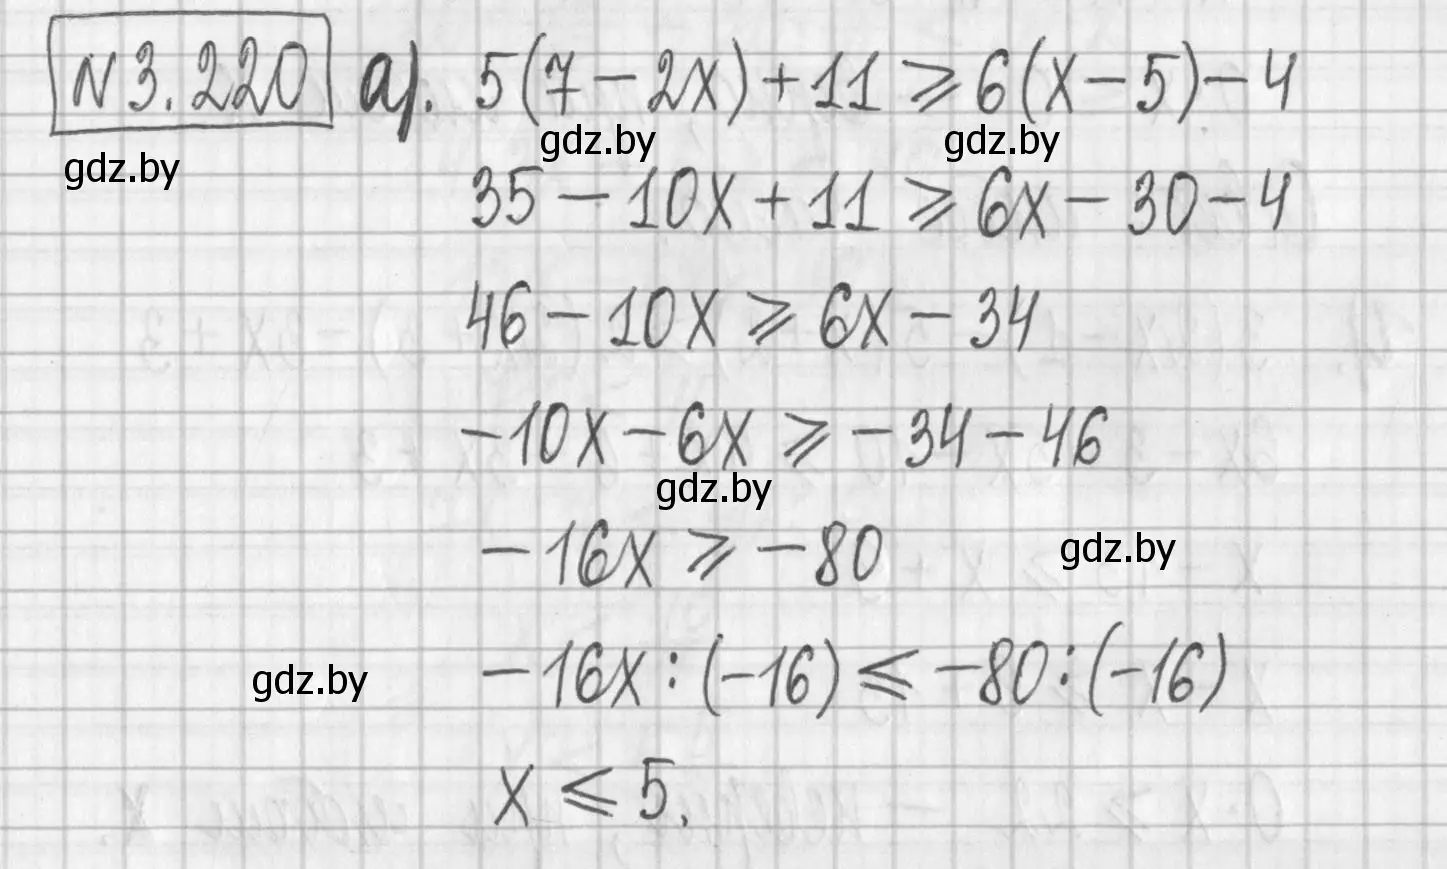 № 3.220 а). 5(7 - 2x) + 11 ⩾ 6(x - 5) - 4
gdz.by gdz.by gdz.by
35 - 10x + 11 ⩾ 6x - 30 - 4
46 - 10x ⩾ 6x - 34
-10x - 6x ⩾ -34 - 46
gdz.by
-16x ⩾ -80
gdz.by
-16x : (-16) ⩽ -80 : (-16)
gdz.by
x ⩽ 5.